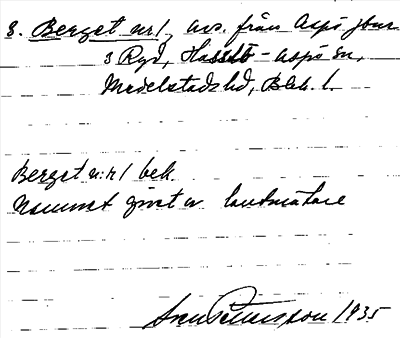 3. Berget nr1, avs. från Aspö jbnr
3 Ryd, Hasslö-Aspö sn,
Medelstads hd, Blek. l.
Berget n:r 1 bek.
Namnet givet av lantmätare
Sven Petersson 1935